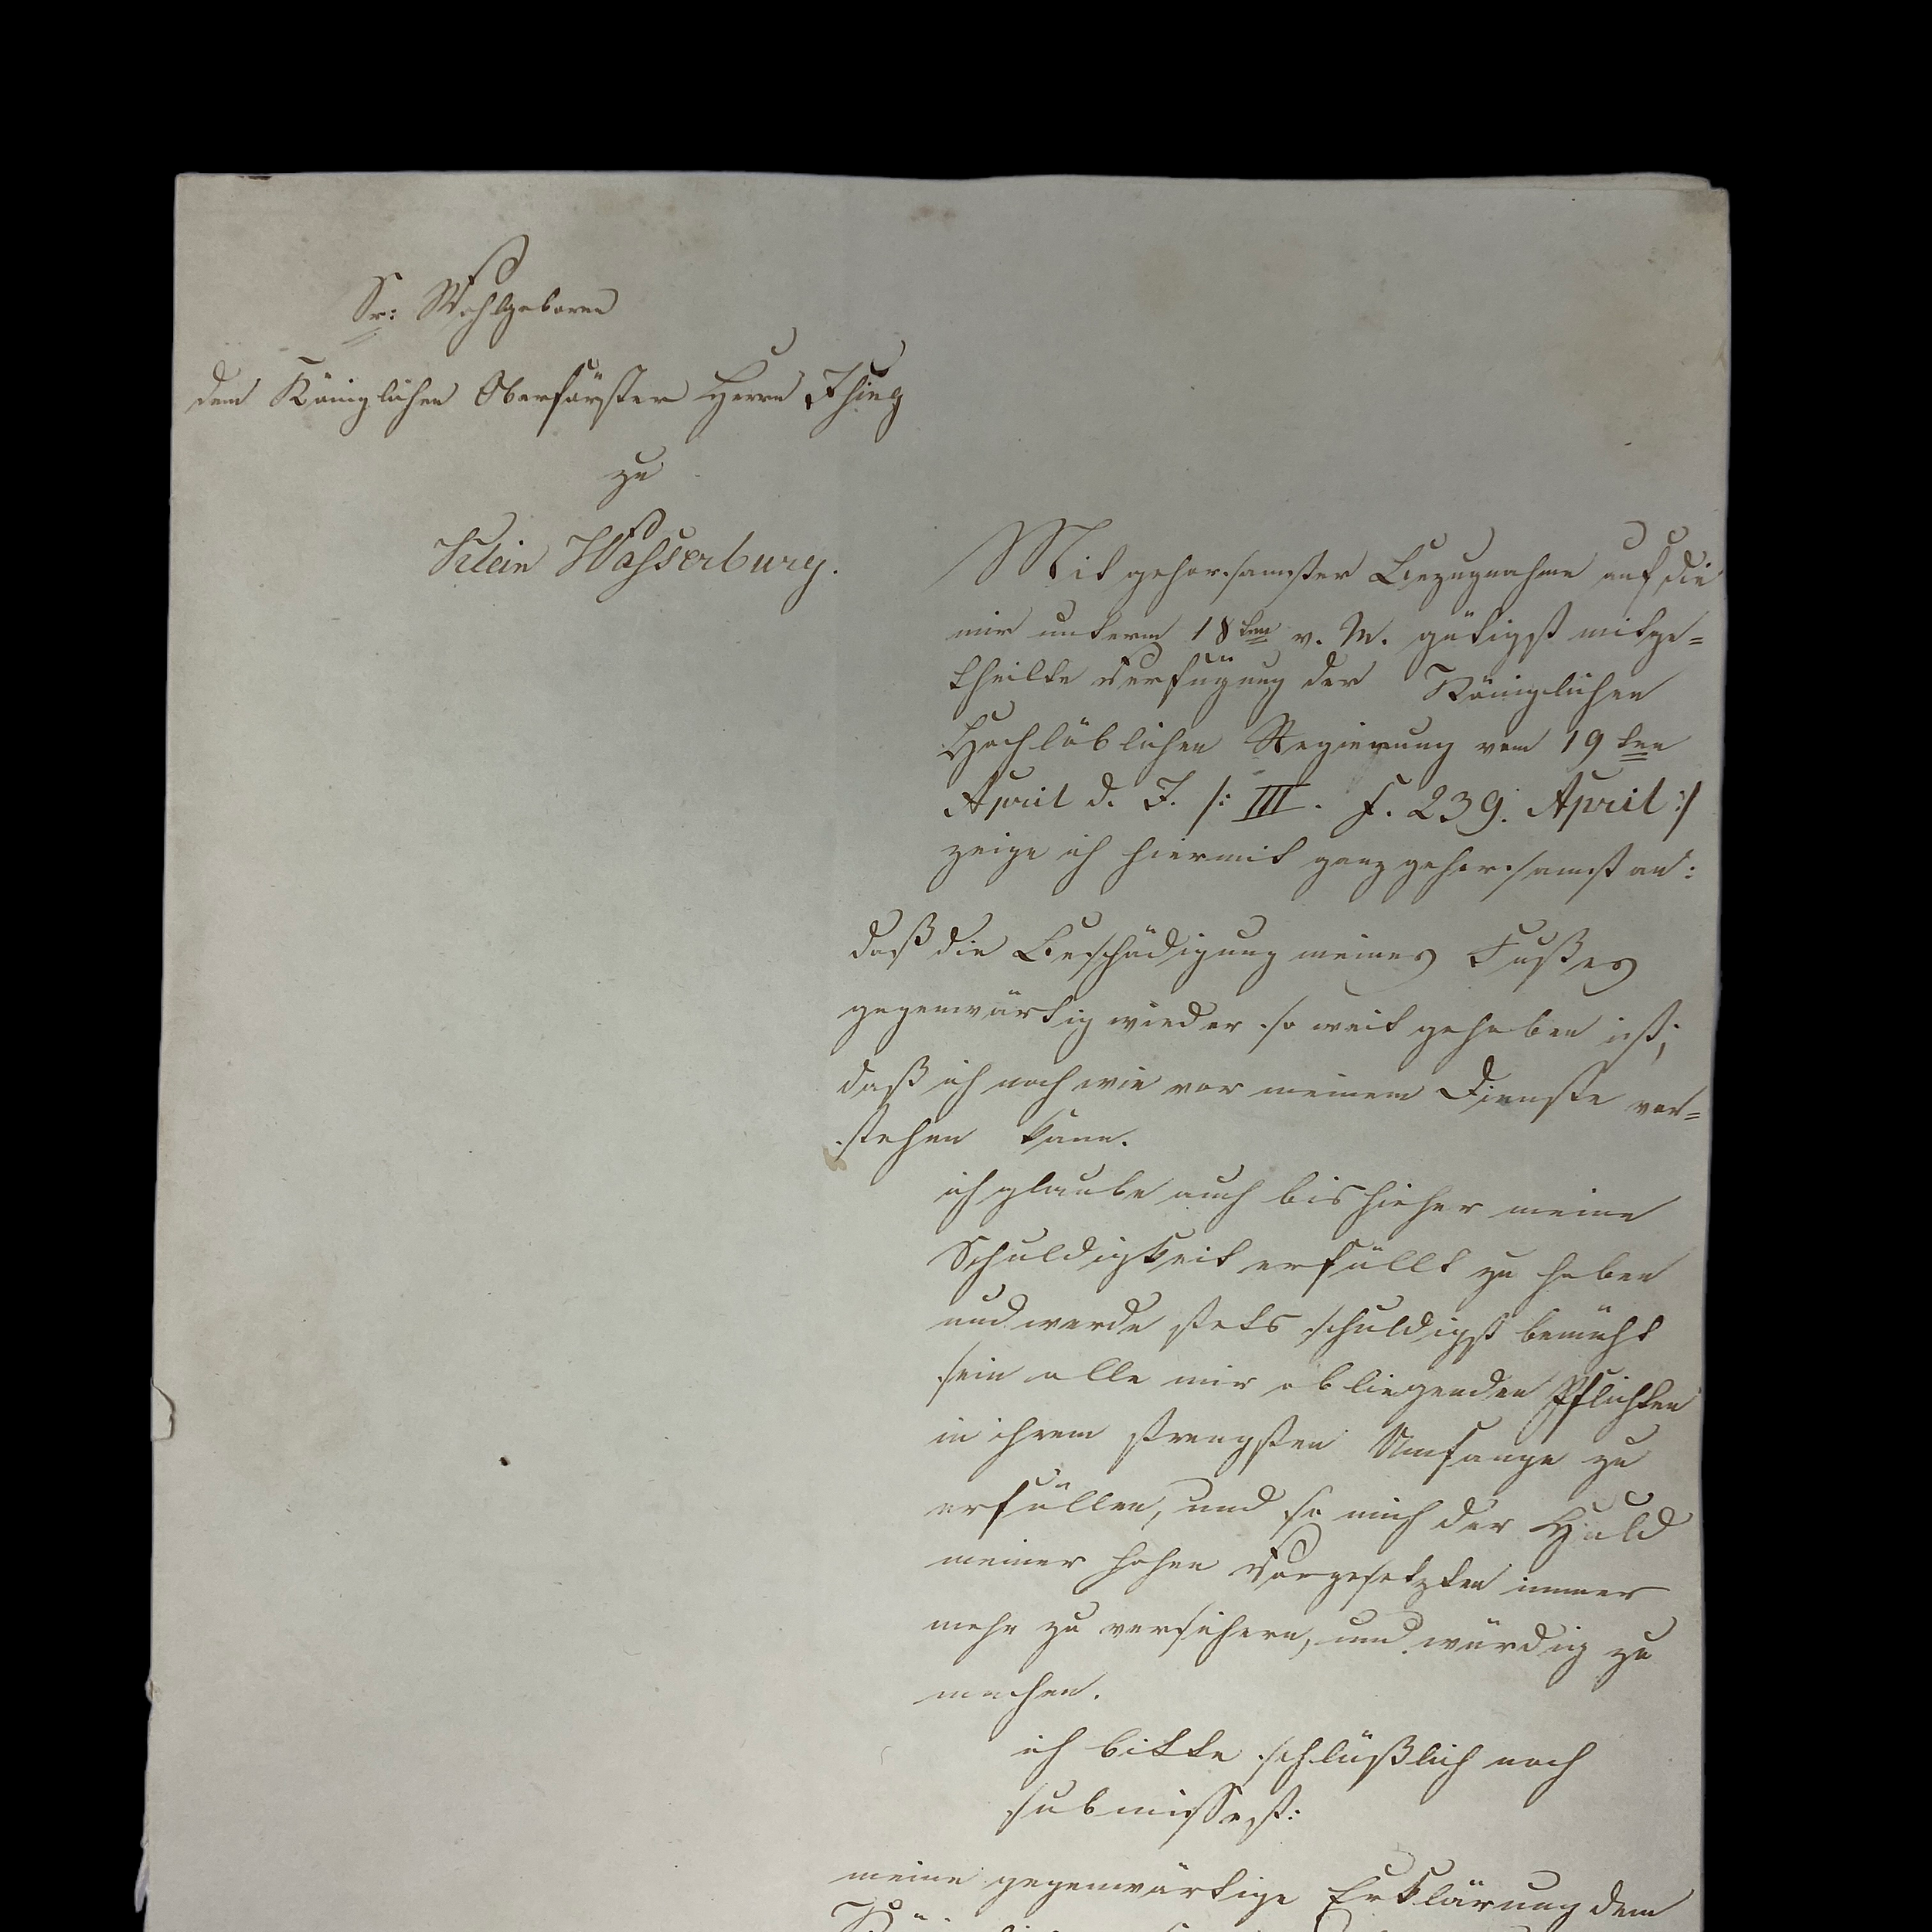 Sr: Wohlgeboren
dem Königlichen Oberförster Herrn
zu
Klein Wasserburg.
Mit gehorsamster Bezugnahme auf die
mir unterm 18ten v. M. gütigst mitge=
theilte Verfügung der Königlichen
Hochlöblichen Regierung vom 19ten
April d. J. /: III. F. 239. April :/
zeige ich hiermit ganz gehorsamst an:
daß die Beschädigung meines Fußes
gegenwärtig wieder so weit gehoben ist,
daß ich nach wie vor meinem Dienste vor=
stehen kann.
ich glaube auch bis hieher meine
Schuldigkeit erfüllt zu haben
und werde stets schuldigst bemüht
sein alle mir obliegenden Pflichten
in ihrem strengsten Umfange zu
erfüllen, und so mich der Huld
meiner hohen Vorgesetzten immer
mehr zu versichern, und würdig zu
machen.
ich bitte schlüßlich noch
submissest:
meine gegenwärtige Erklärung dem